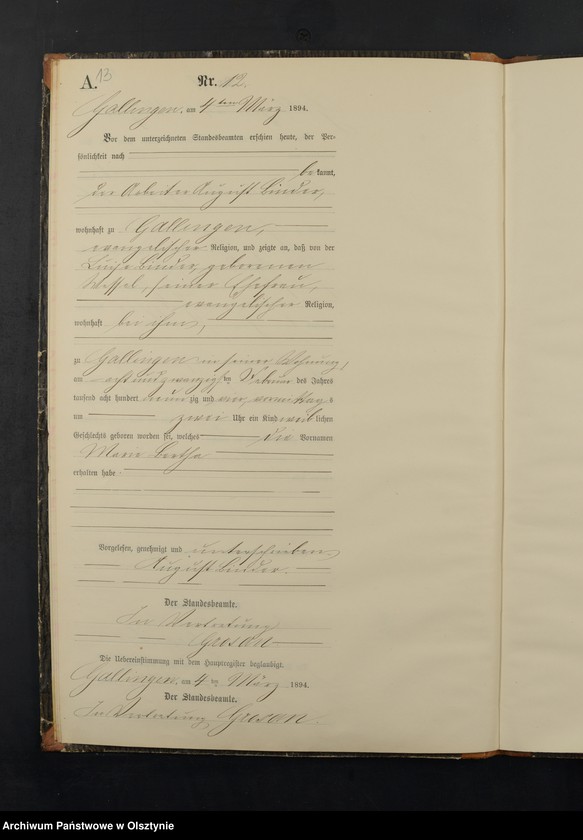 A. 13
Nr. 12.
Gallingen, am 4ten März 1894.
Vor dem unterzeichneten Standesbeamten erschien heute, der Per-
sönlichkeit nach
be kannt,
der Arbeiter August Binder,
wohnhaft zu Gallingen,
evangelischer Religion, und zeigte an, daß von der
Luise Binder, geborenen
Wessel, seiner Ehefrau,
evangelischer Religion,
wohnhaft bei ihm,
zu Gallingen in seiner Wohnung,
am acht und zwanzigsten Februar des Jahres
tausend acht hundert neun zig und vier vormittag s
um zwei Uhr ein Kind weib lichen
Geschlechts geboren worden sei, welches die Vornamen
Bertha
erhalten habe
Vorgelesen, genehmigt und unterschrieben
August Binder.
Der Standesbeamte.
In Vertretung
Die Uebereinstimmung mit dem Hauptregister beglaubigt.
Gallingen, am 4ten März 1894.
Der Standesbeamte.
In Vertretung
Archiwum Państwowe w Olsztynie